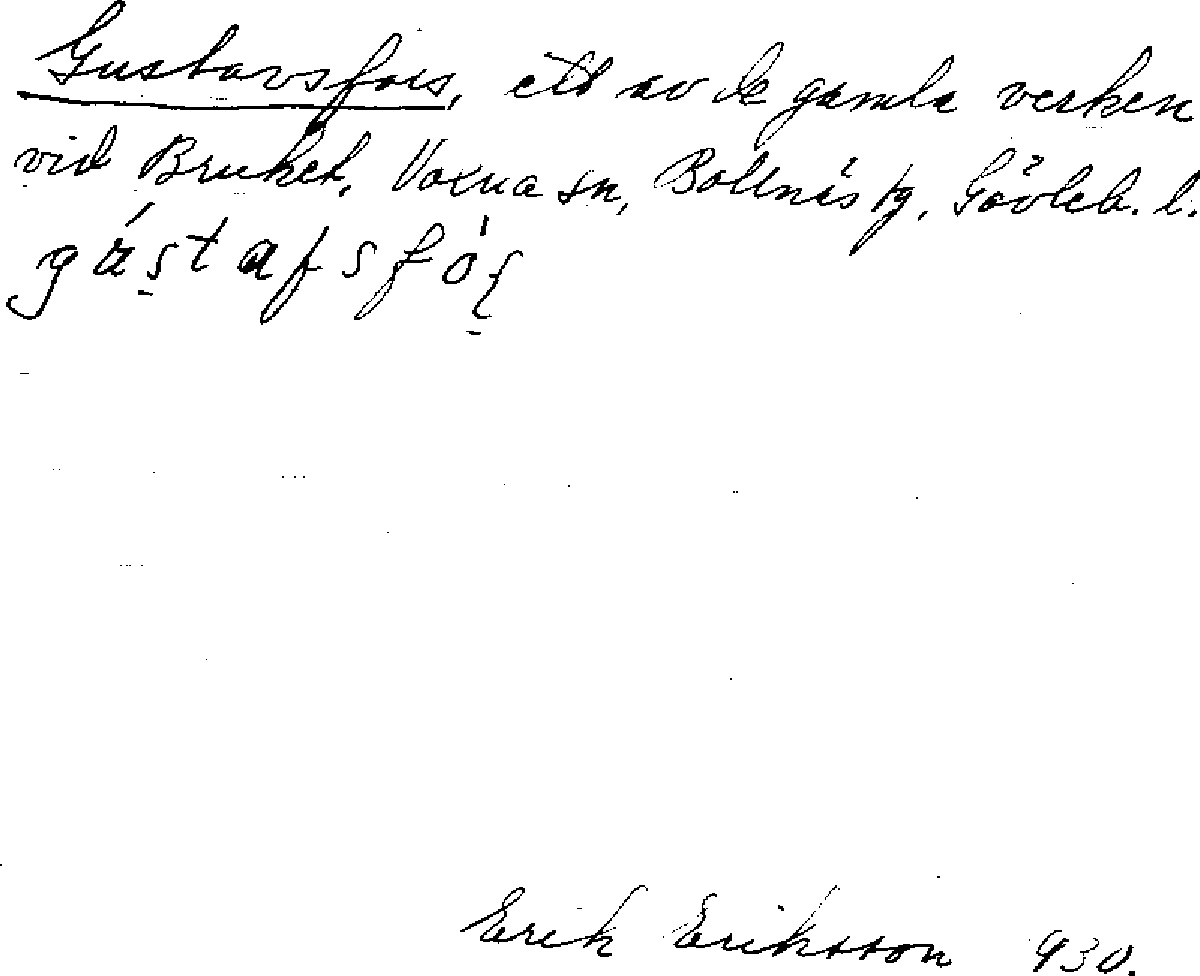 Gustavsfors, ett av de gamla verken
vid Bruket. Voxna sn, Bollnäs tg, Gävleb. l.
gástafsfó
Erik Eriksson 930.